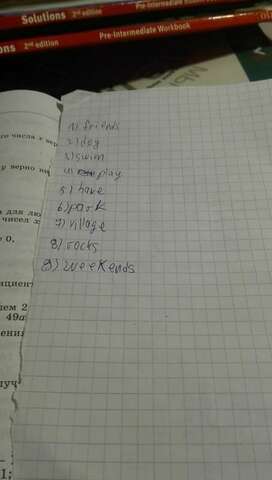 Solutions 2nd edition Pre-Intermediate
ons 2nd edition Pre-Intermediate Workbook
1) friends
2) dog
3) swim
4) play
5) have
6) park
7) village
8) rocks
9) weekends
числа к
у верно
для
чисел
0,
49a
1;